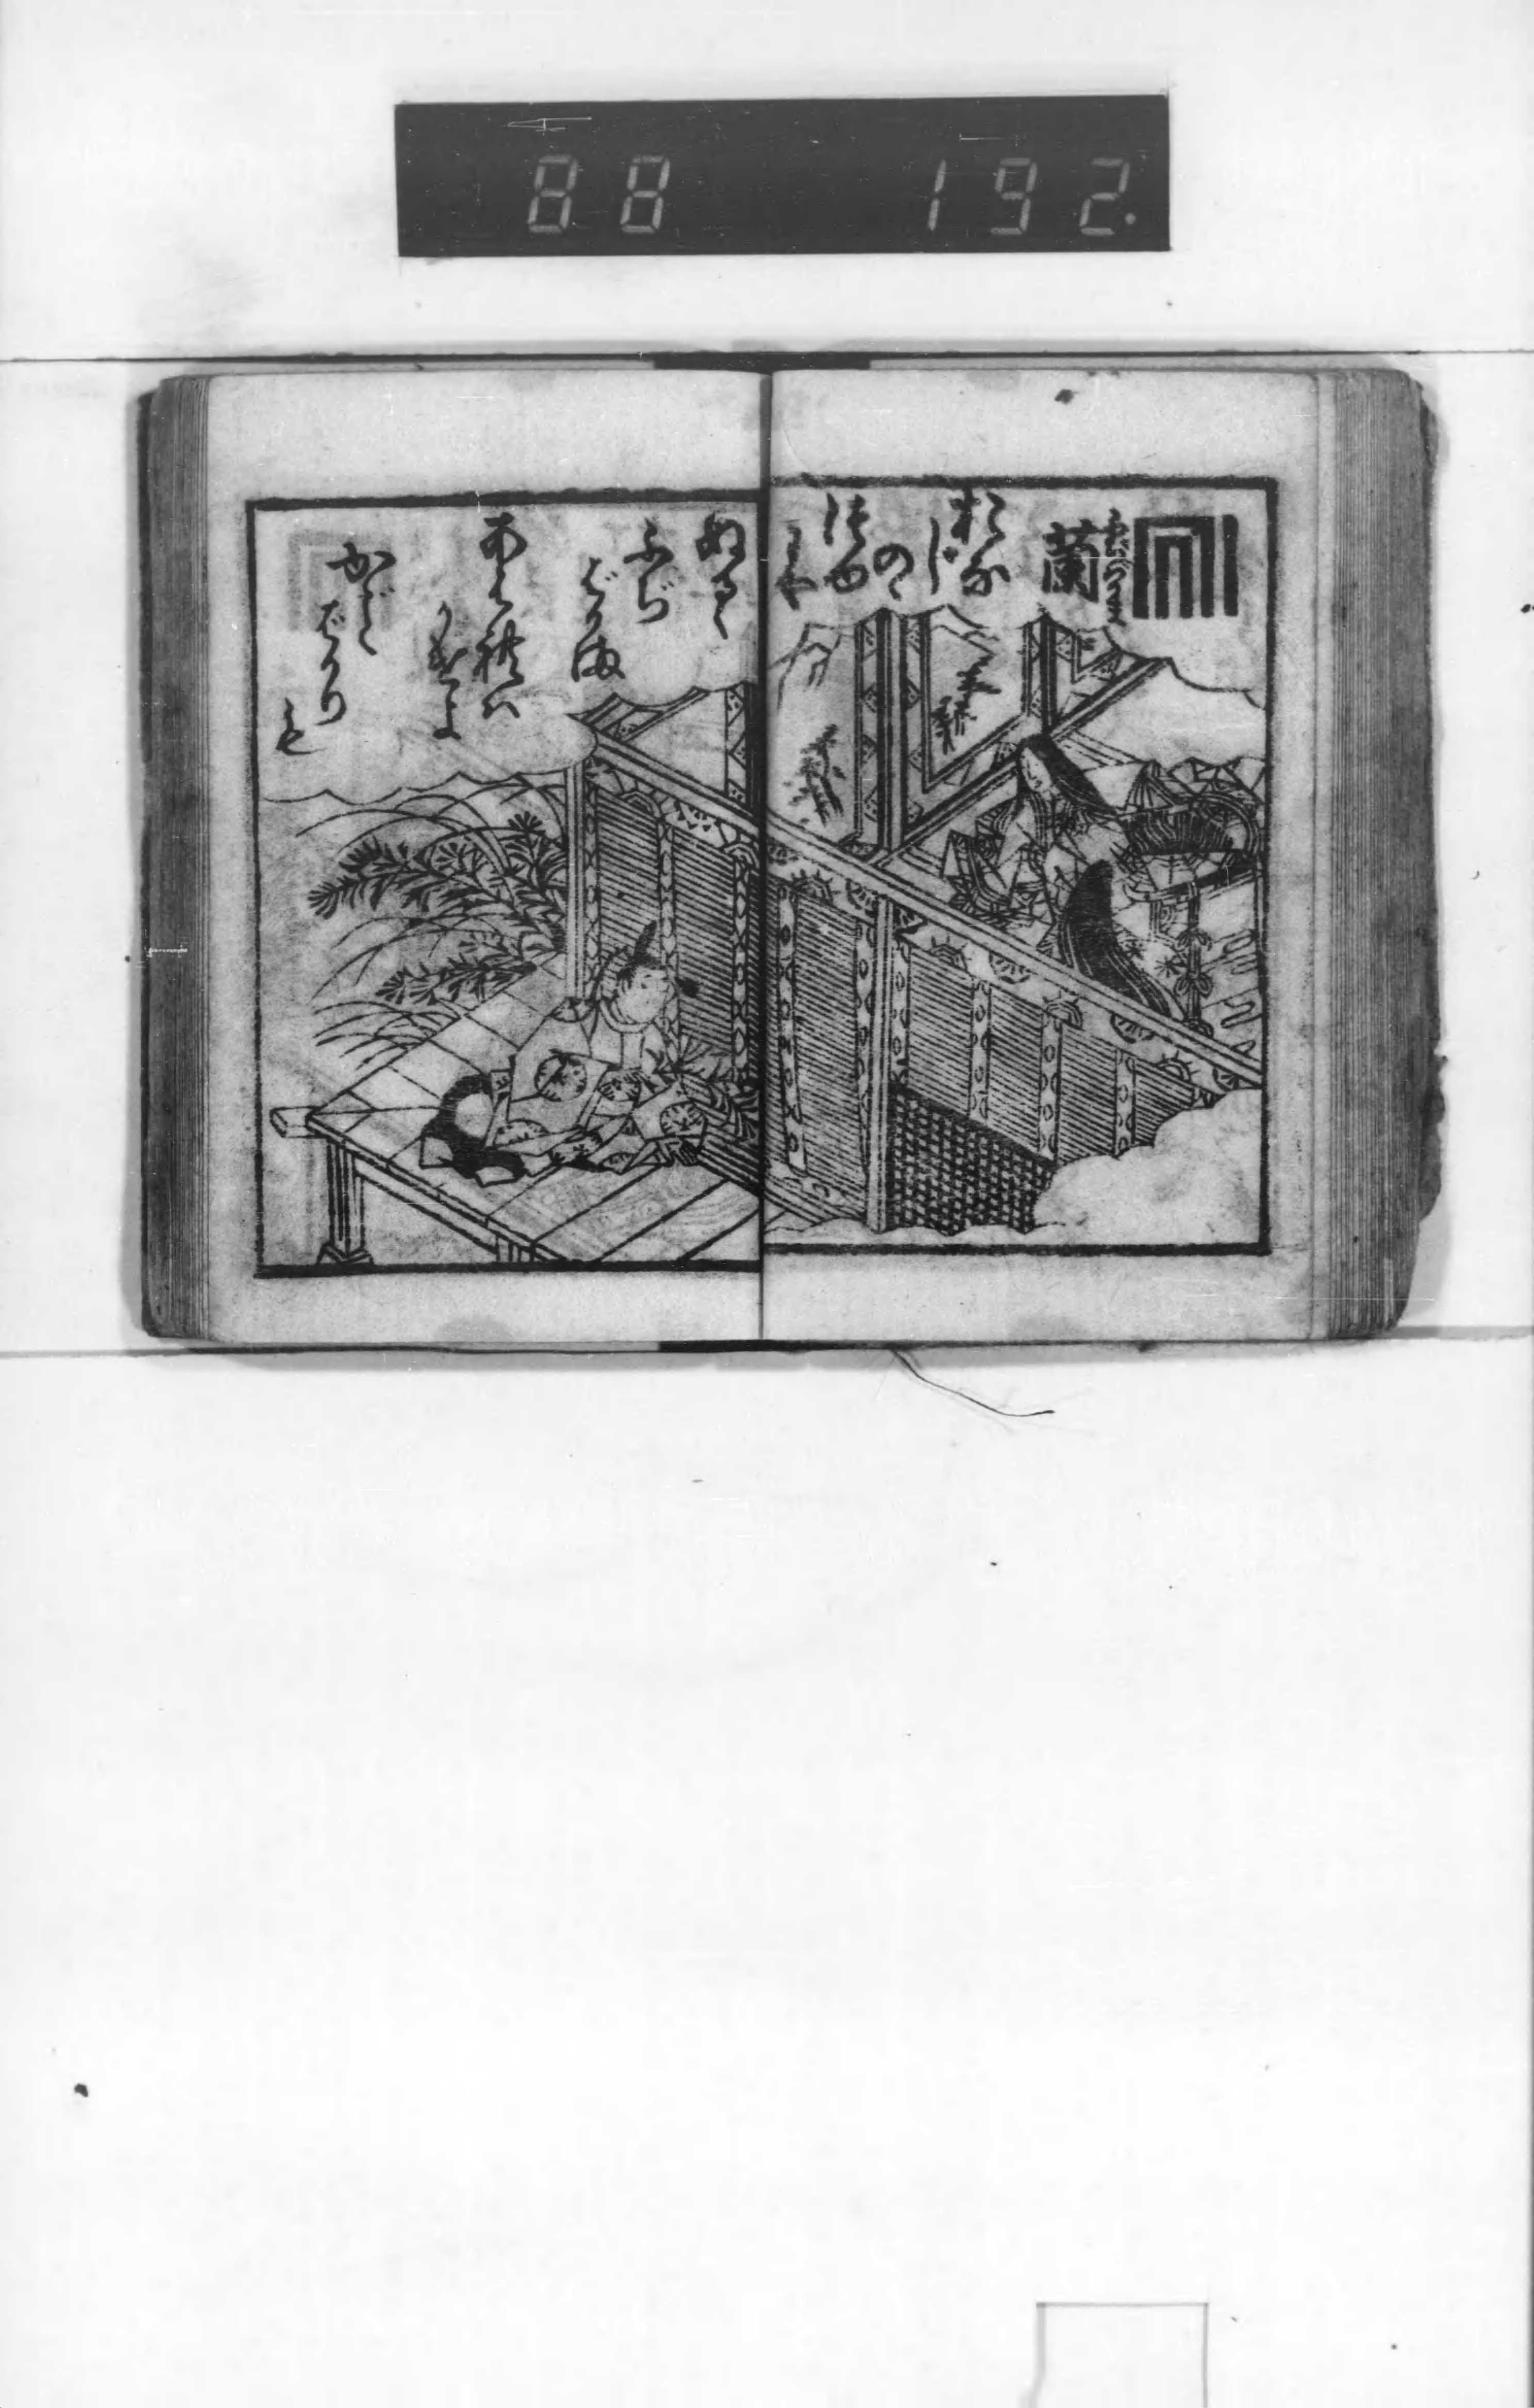 88 192.
蘭
ふぢばかま
おな
じ
のゝ
露や
つゆ
ぬるゝ
ふぢ
ばかま
あはれは
かけよ
かごと
ばかり
も